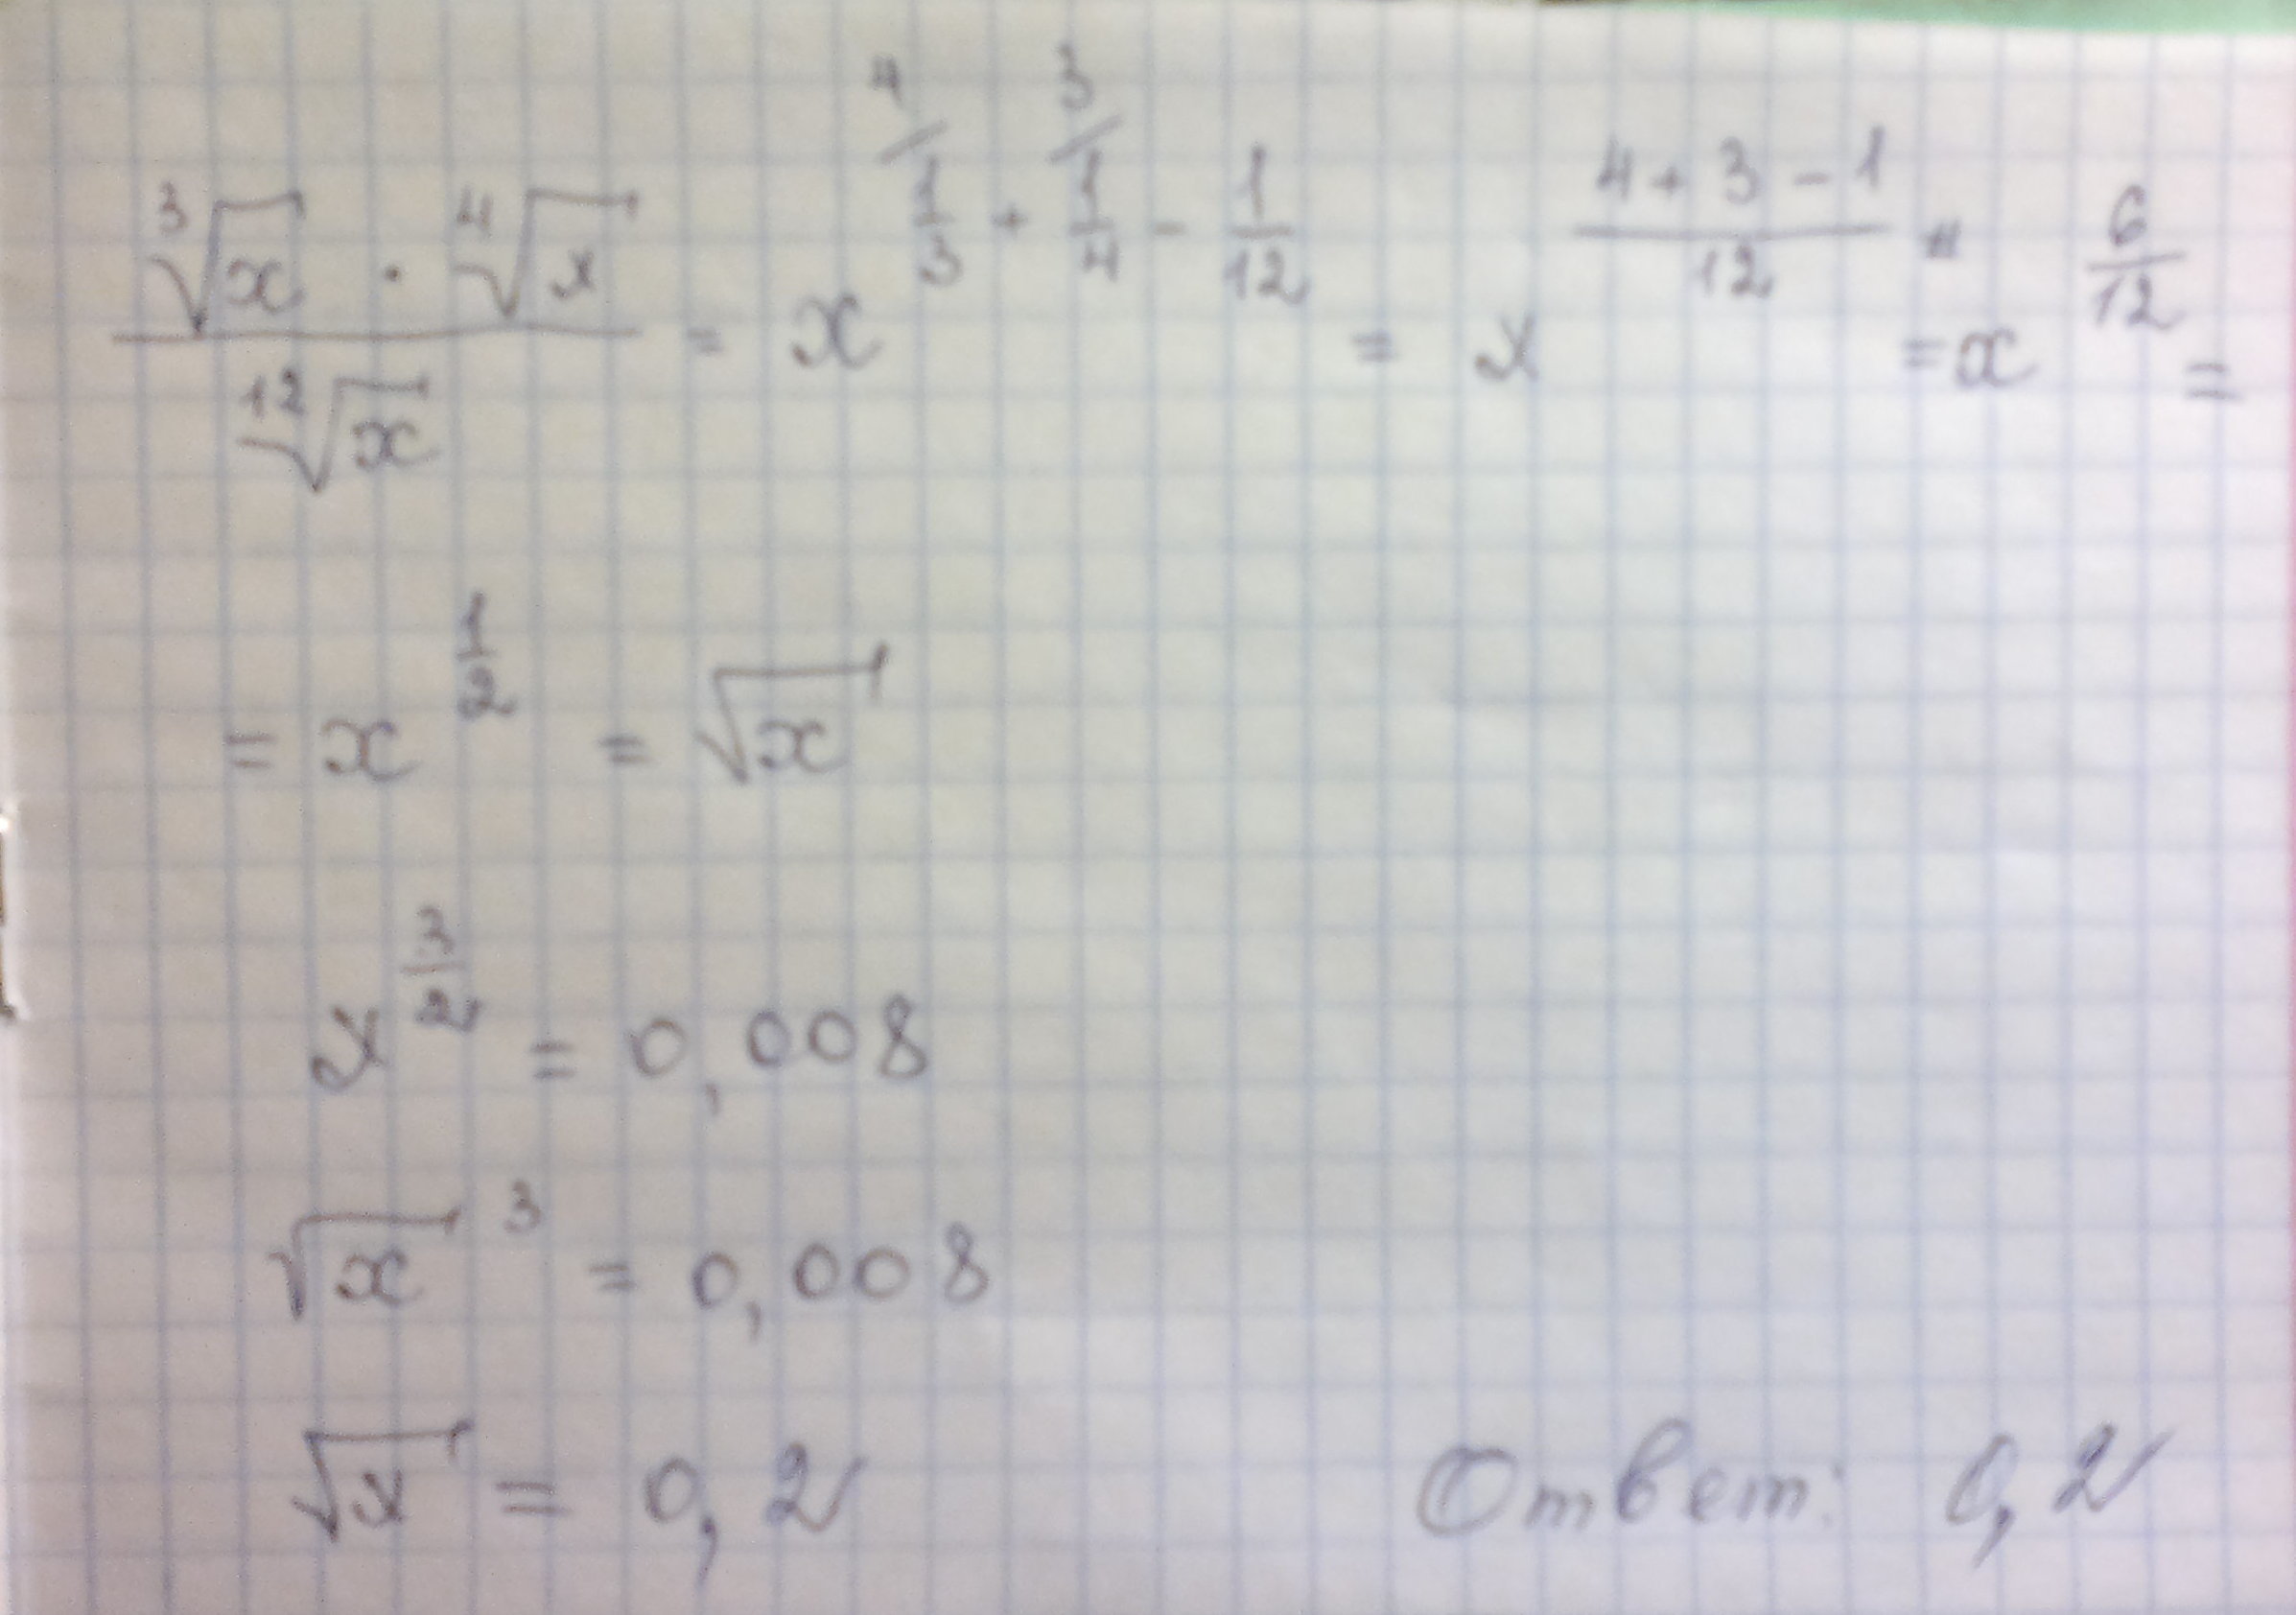 ∛x · ∜x / ¹²√x = x^(⁴/1/3 + ³/1/4 − 1/12) = x^((4+3−1)/12) = = x^(6/12) =
= x^(1/2) = √x
x^(3/2) = 0,008
√x ³ = 0,008
√x = 0,2
Ответ: 0,2